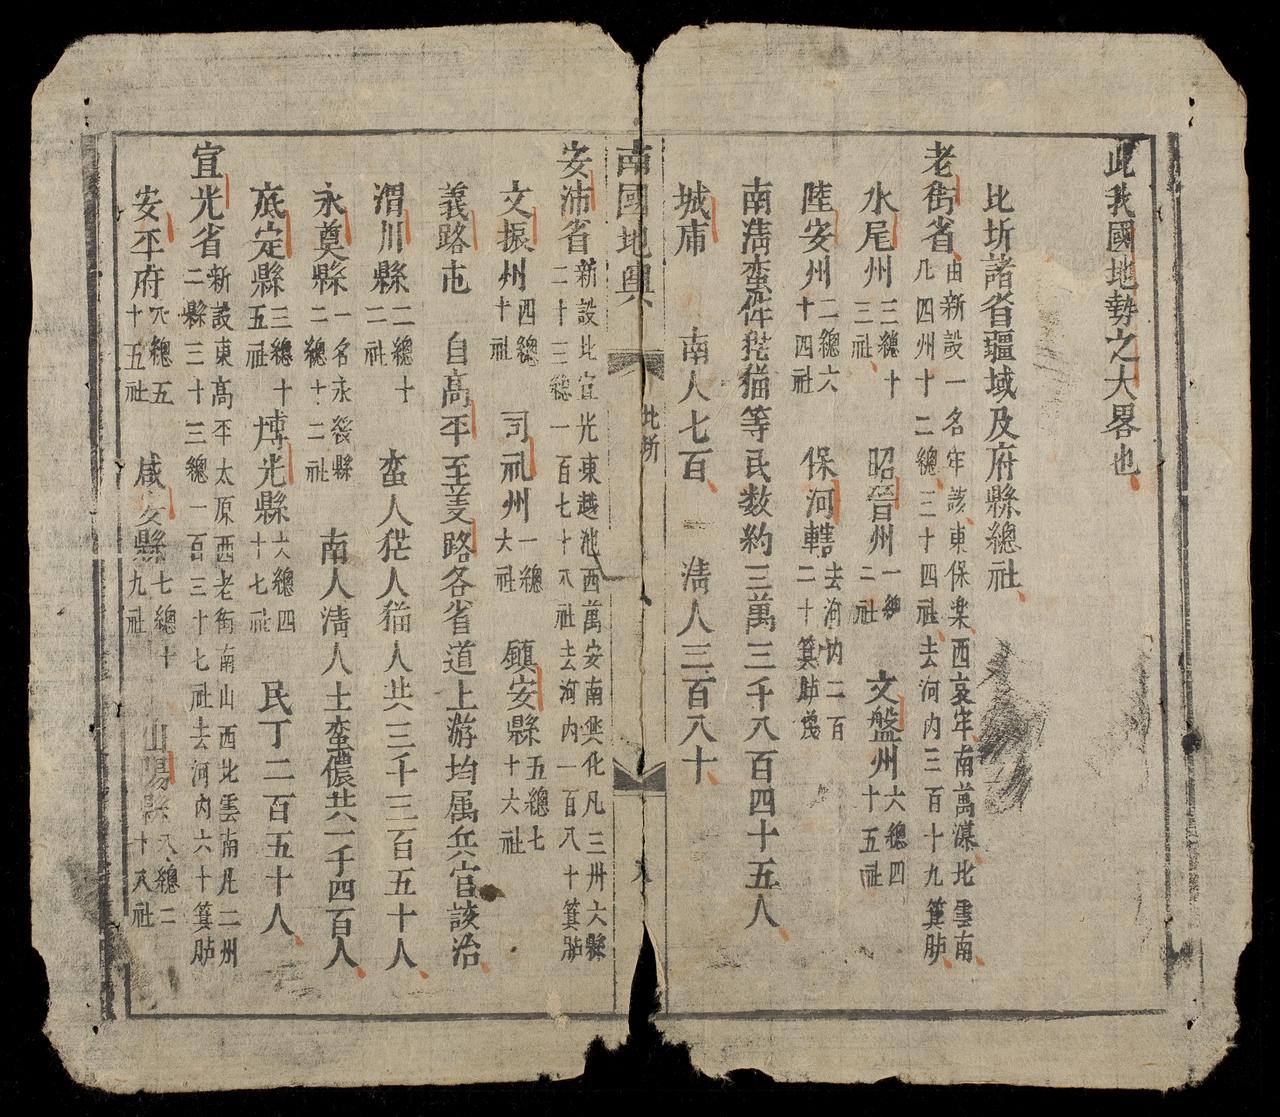 此我國地勢之大畧也
比圻諸省疆域及府縣總社
老街省由新設一名牢該東保楽西哀牢南萬謀北雲南
凢四州十二總三十四社去河内三百十九箕胪
水尾州三總十三社 昭晉州一總二社 文盤州六總四十五社
陸安州二總六十四社 保河轄去河内二百二十箕胪
南清蛮件狵猫等民数約三萬三千八百四十五人
城庯 南人七百 清人三百八十
南國地輿 比圻
安沛省新設北宣光東越池西萬安南興化凡三州六縣
二十三總一百七十八社去河内一百八十箕胪
文振州四總十社 司礼州一總六社 鎮安縣五總七十六社
義路市 自高平至義路各省道上游均属兵官該治
渭川縣二總十二社 蛮人狵人猫人共三千三百五十人
永奠縣一名永綏縣二總十二社 南人清人土蛮儂共一千四百人
底定縣三總十五社 博光縣六總四十七社 民丁二百五十人
宣光省新設東高平太原西老街南山西北雲南凡二州
二縣三十三總一百三十七社去河内六十箕胪
安平府六總五十五社 咸安縣七總十九社 山陽縣八總二十八社